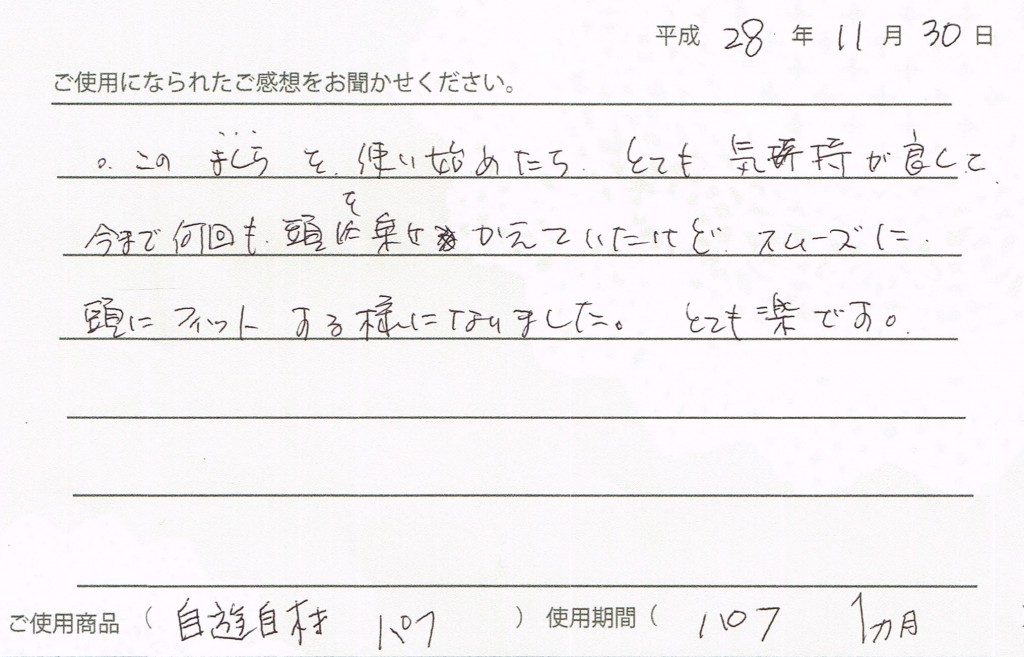 平成 28 年 11 月 30 日
ご使用になられたご感想をお聞かせください。
。この まくら を 使い始めたら とても 気持が良くて
今まで何回も 頭を乗せかえていたけど スムーズに
頭にフィット する様になりました。 とても楽です。
ご使用商品 ( 自遊自在 パフ ) 使用期間 ( パフ 1カ月